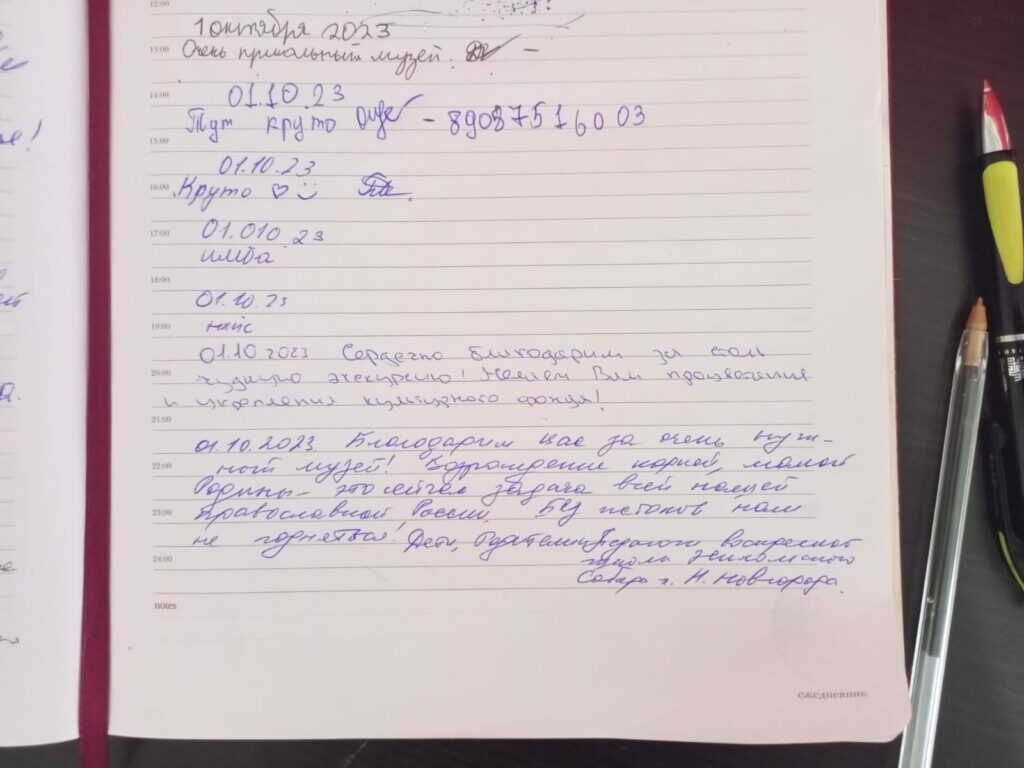 12:00
1 октября 2023
13:00
Очень прикольный музей. –
14:00
01.10.23
Тут круто – 89087516003
15:00
01.10.23
16:00
Круто ♡
17:00
01.010.23
имба
18:00
01.10.23
19:00
найс
01.10.2023 Сердечно благодарим за столь
20:00
чудную экскурсию! Желаем Вам процветания
и укрепления культурного фонда!
21:00
01.10.2023. Благодарим вас за очень нуж-
22:00
ный музей! Возрождение корней, малой
Родины – это задача всей нашей
23:00
православной России. Без истоков нам
не подняться! Дети, Родители, Педагоги воскресной
24:00
школы
Собора г. Н. Новгорода.
notes
ежедневник